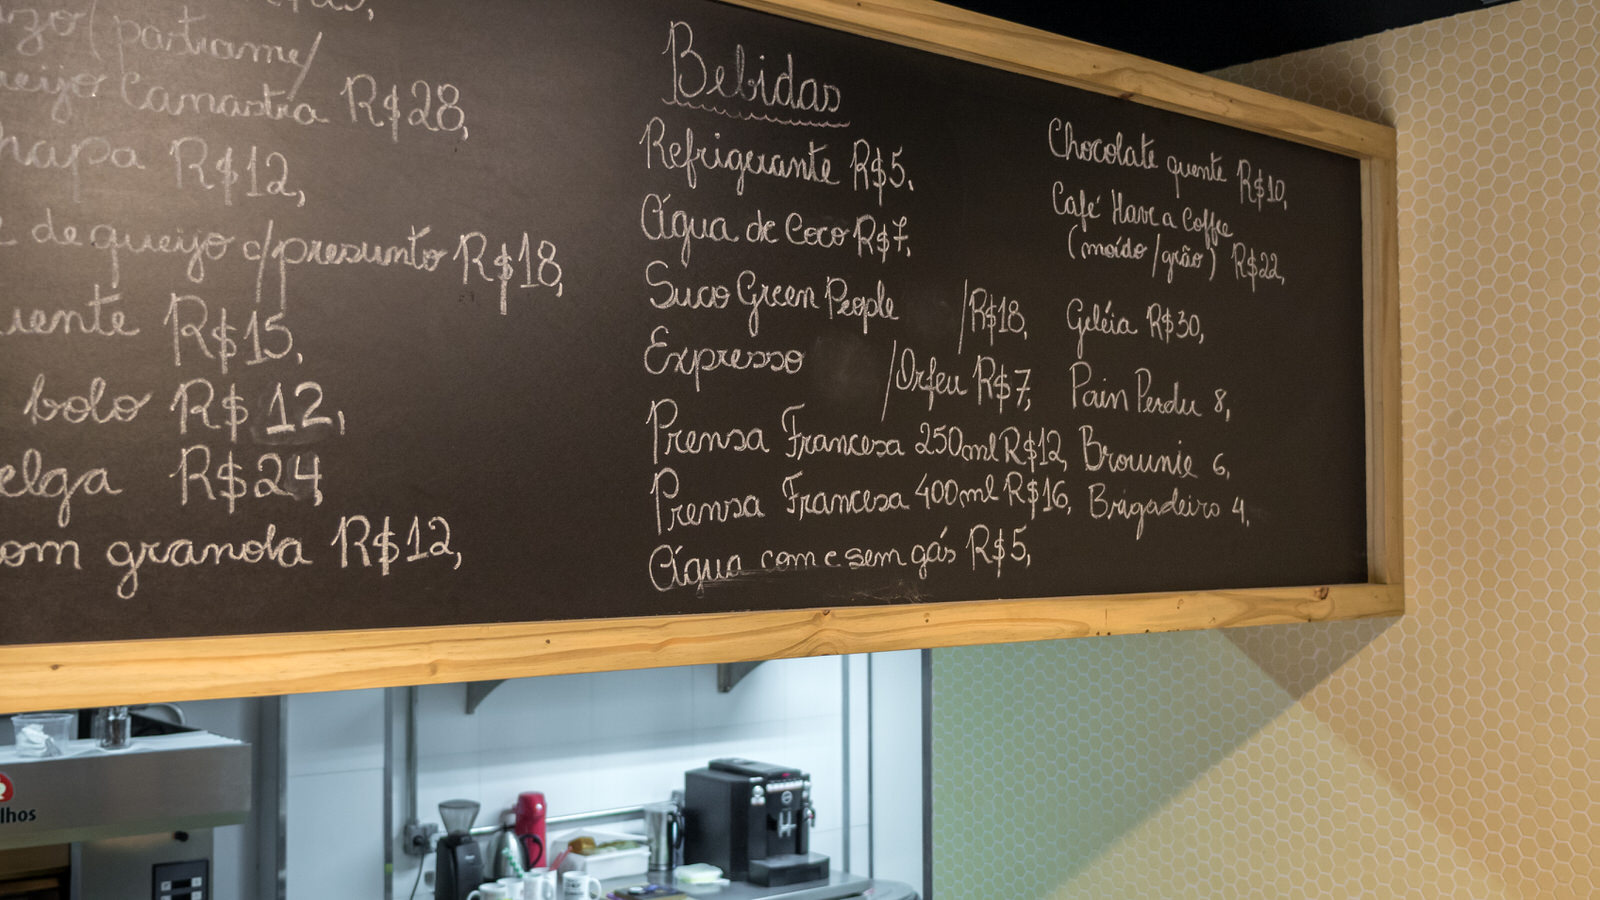 /patrame/
Canastra R$28,
R$12,
de queijo c/presunto R$18,
R$15,
bolo R$12,
elga R$24
om granola R$12,
Bebidas
Refrigerante R$5,
Água de Coco R$7,
Suco Green People /R$18,
Expresso /Orfeu R$7,
Prensa Francesa 250ml R$12,
Prensa Francesa 400ml R$16,
Água com e sem gás R$5,
Chocolate quente R$10,
Café Have a Coffee
(moído/grão) R$22,
Geléia R$30,
Pain Perdu 8,
Brownie 6,
Brigadeiro 4,
lhos